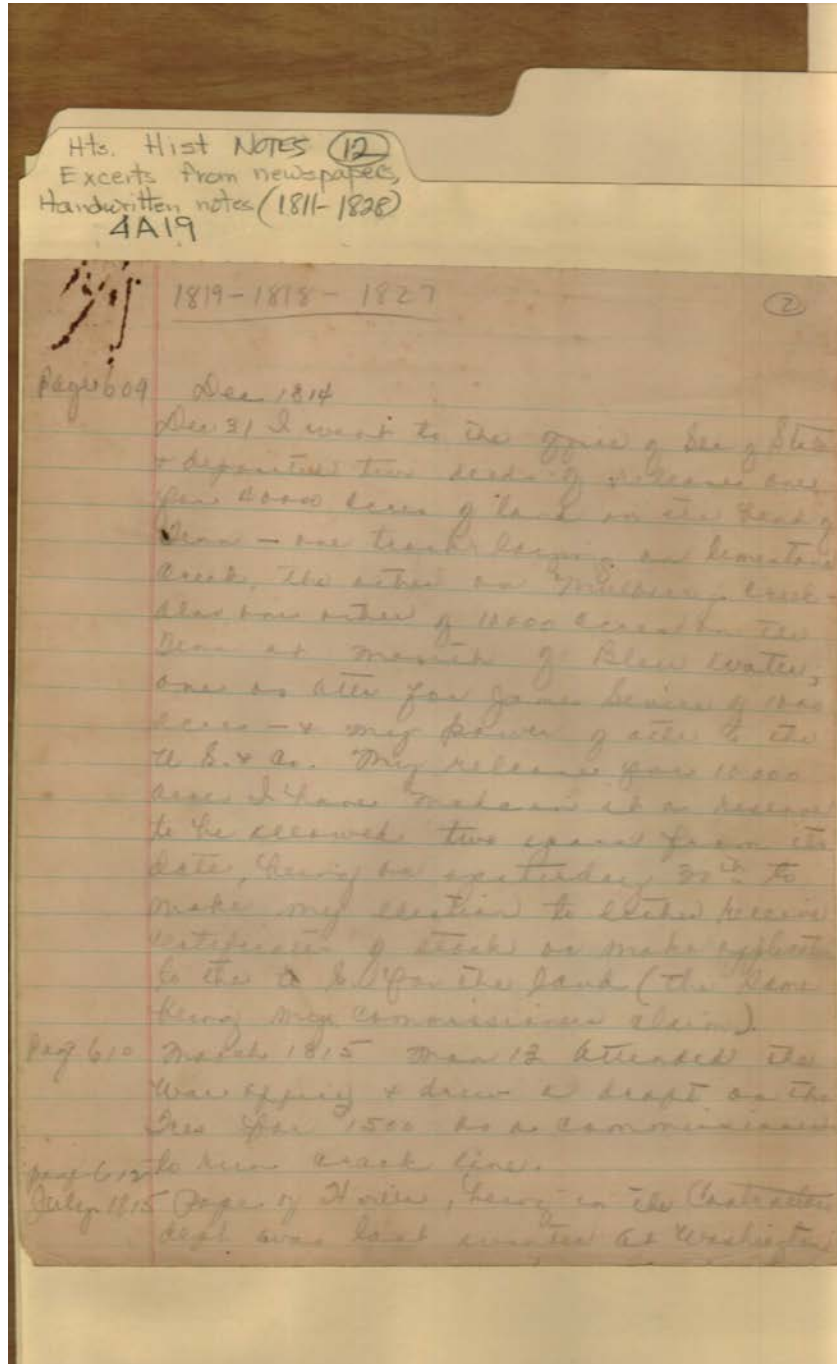 Hts. Hist NOTES (12)
Excerts from newspapers,
Handwritten notes (1811-1828)
4A19
1819-1818-1827
(2)
Page 609 Dec 1814
Dec 31 I went to the office of Sec of State
& deposited two deeds of release one
for 40000 acres of land on the Bend of
Tenn — one tract laying on Limestone
Creek, the other on Mulberry Creek -
also one other of 10000 acres on the
Tenn at mouth of Blue Water,
one as atto for James Sevier of 1000
acres — & my power of atto to the
U S. & Co. My release for 10000
acres I have made in it a reserve
to be allowed two years from its
date, being on yesterday 30th to
make my election to either receive
certificates of stock or make application
to the U S. for the land (the same
being my commissioners claim).
Page 610 March 1815 Mar 13 attended the
War office & drew a draft on the
Tres for 1500 as a commissioner
to run Creek line.
page 612
July 1815 Pope of H'ville, being in the Contractors
dept was last winter at Washington